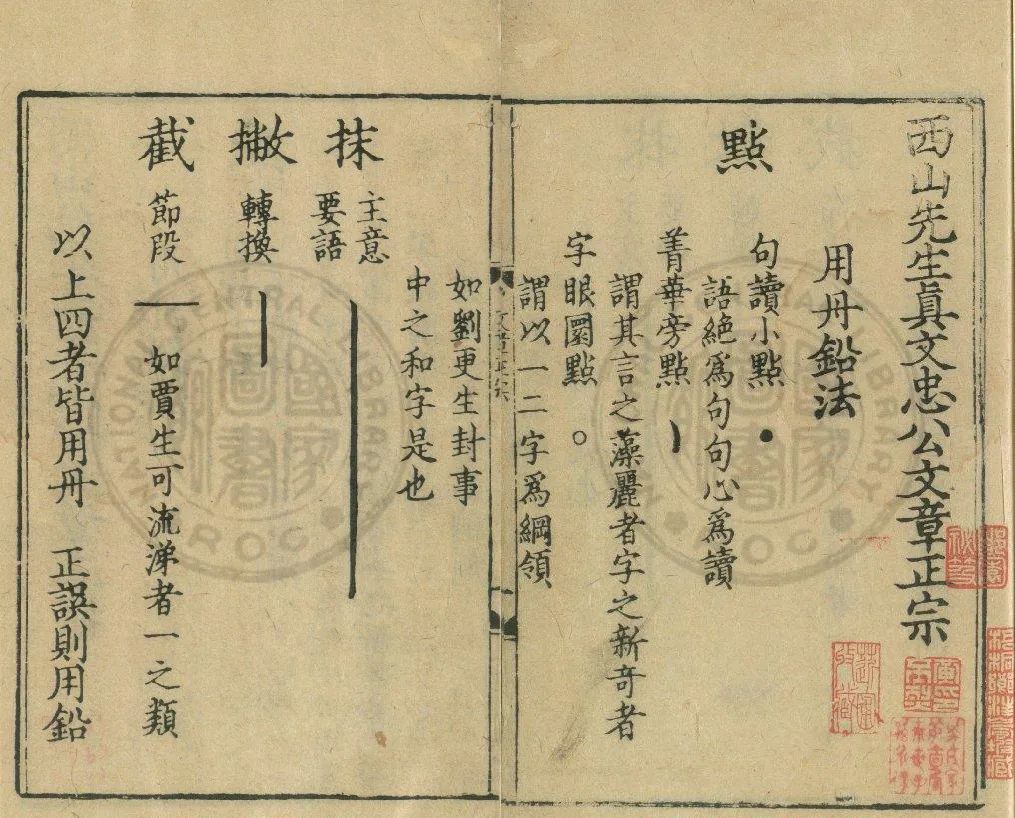 西山先生眞文忠公文章正宗
用丹鉛法
點
句讀小點
語絕爲句句心爲讀
菁華旁點
謂其言之藻麗者字之新奇者
字眼圏點
謂以一二字爲綱領
如劉更生封事
中之和字是也
抹
主意
要語
撇
轉換
截
節段
如賈生可流涕者一之類
以上四者皆用丹 正誤則用鉛
國家圖書
NATIONAL CENTRAL LIBRARY
R.O.C.